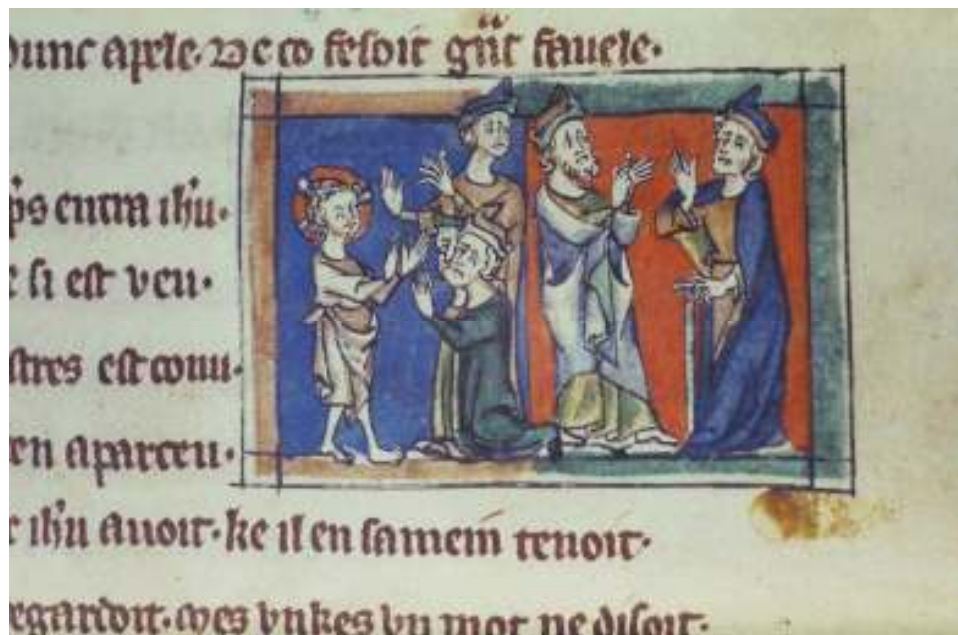 unc apele. De co fesoit gñt fauele.
ps entra ihu.
e si est veu.
stres est conu
en aparceu.
ihu auoit. ke il en samein tenoit.
egardoit. mes unkes un mot ne disoit.